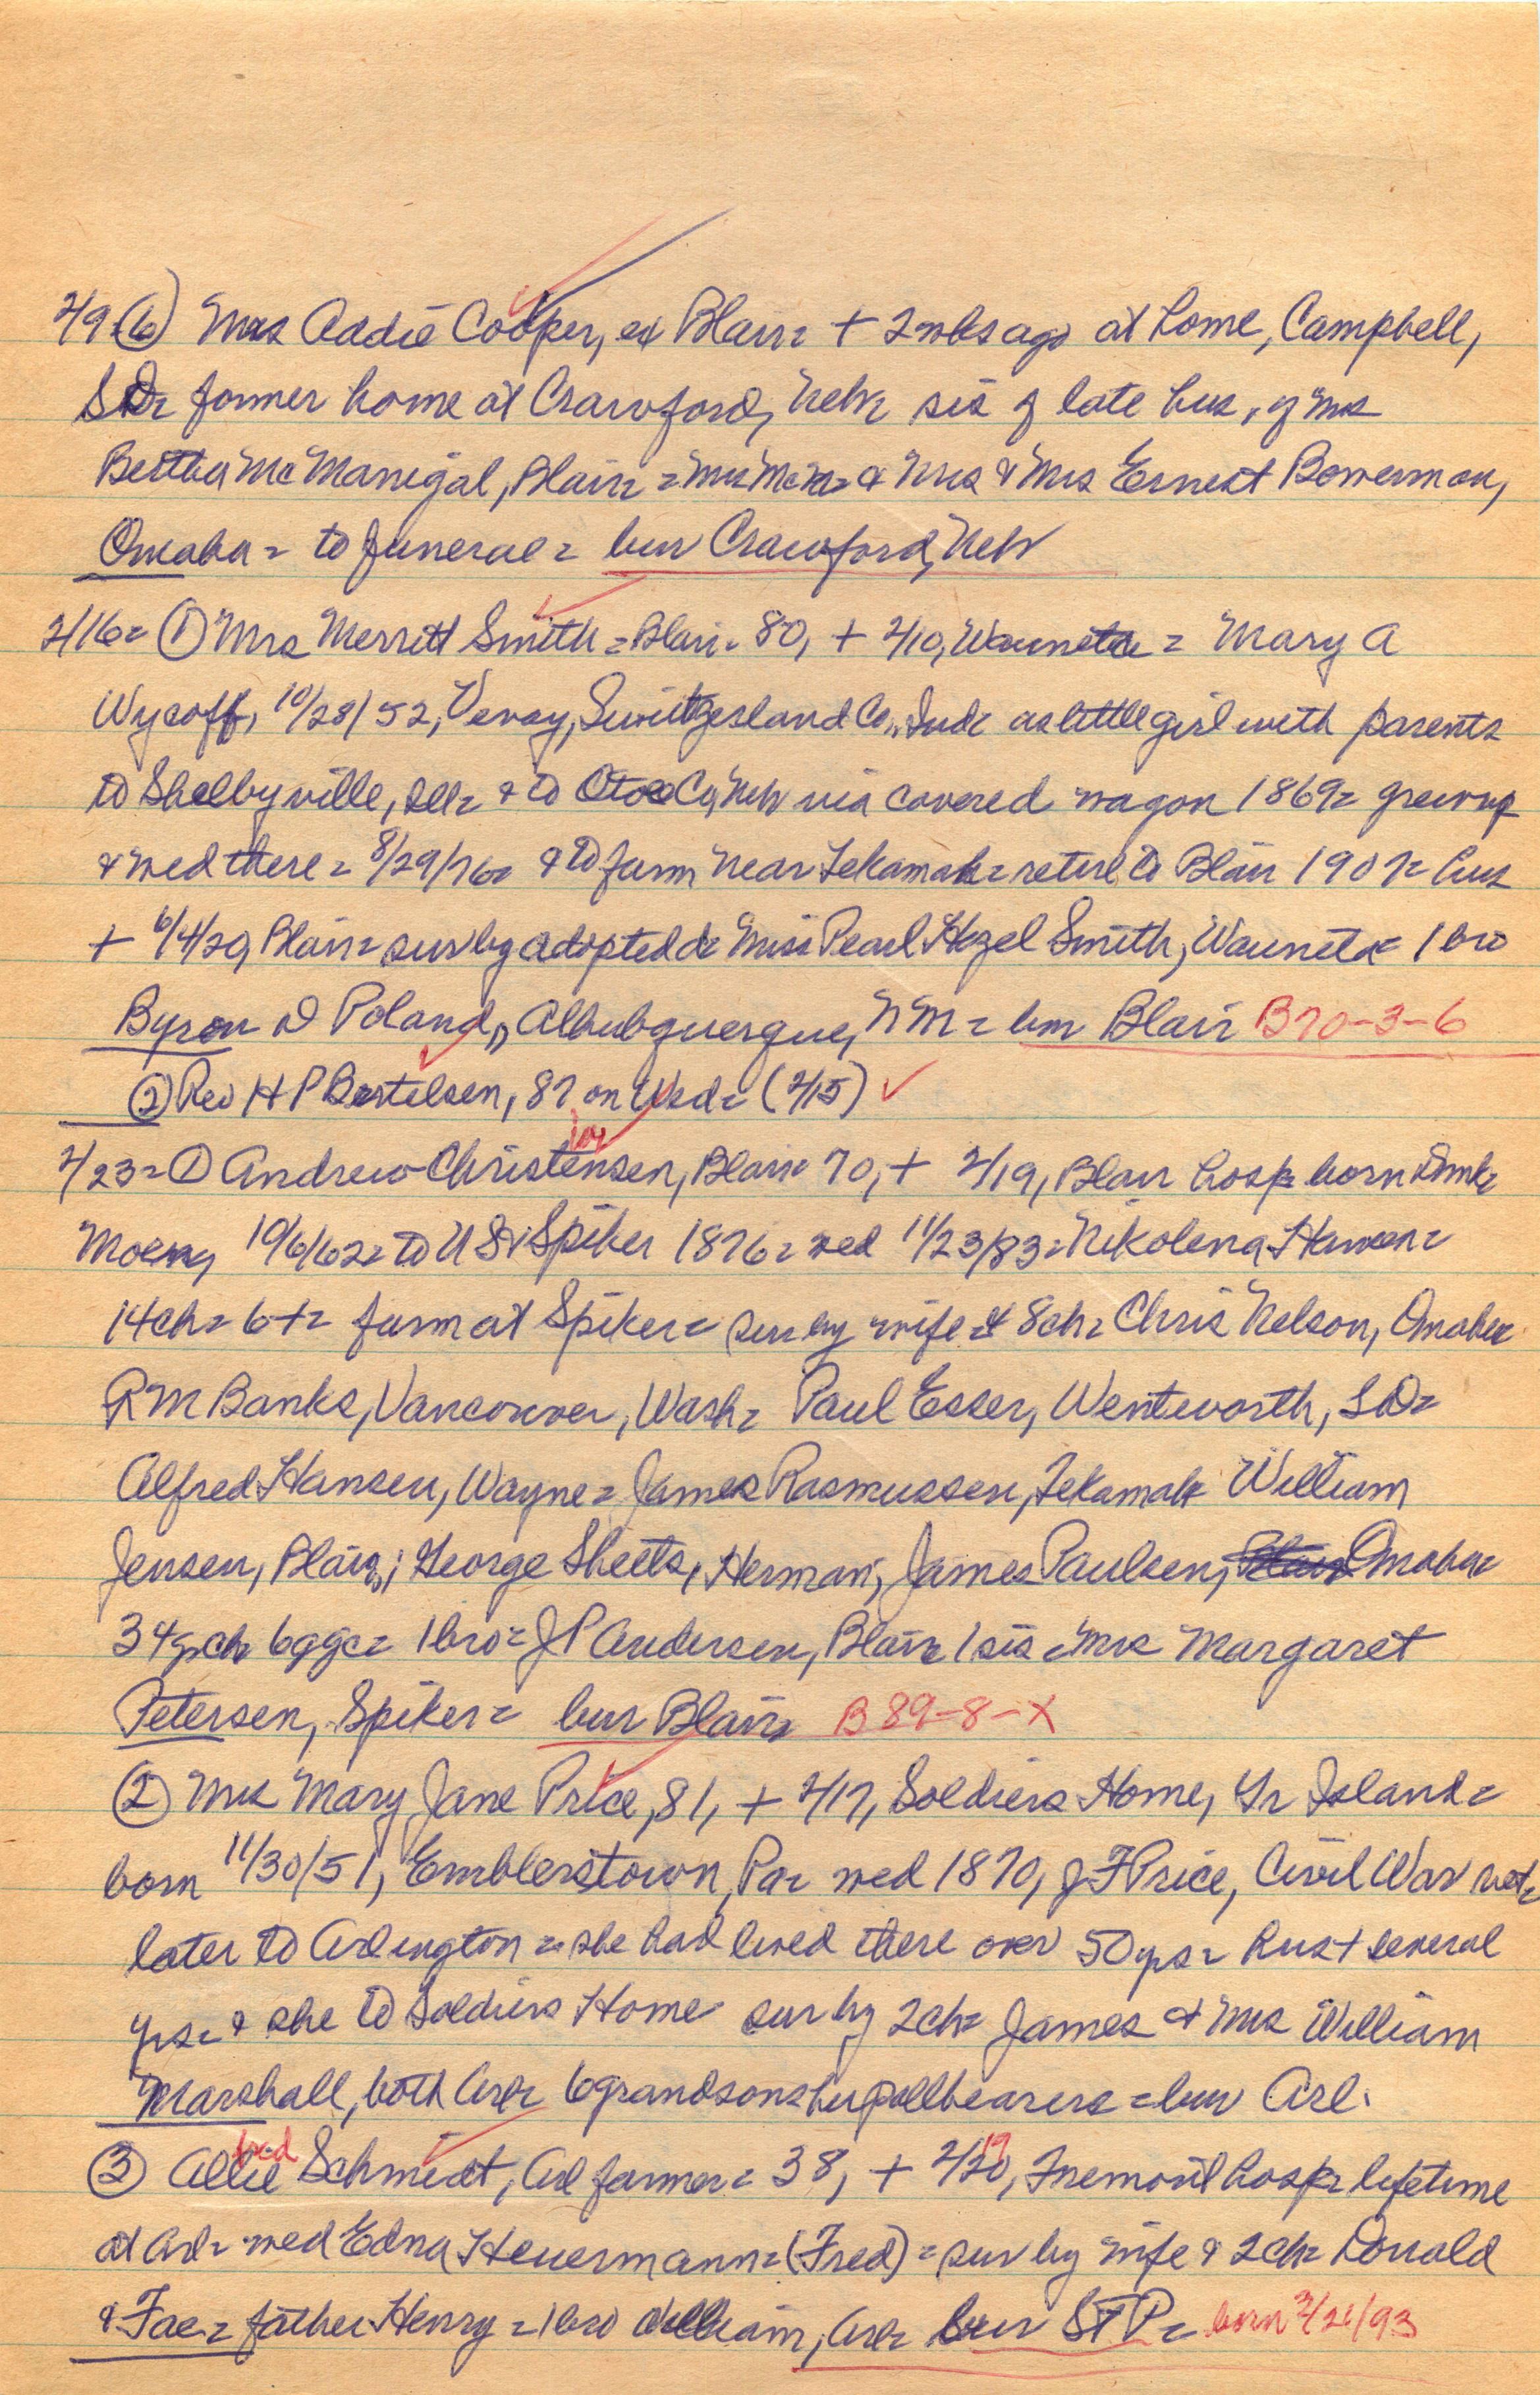 2/9 (6) Mrs Addie Cooper, ex Blair = + 2 wks ago at home, Campbell,
SD = former home at Crawford, Neb = sis of late hus. of Mrs
Bertha McManigal, Blair = Mrs McM = & Mrs & Mrs Ernest Bowerman,
Omaha = to funeral = bur Crawford, Neb
2/16 = (1) Mrs Merritt Smith = Blair = 80, + 2/10, Wauneta = Mary A
Wycoff, 10/28/52, Vevay, Switzerland Co., Ind = as little girl with parents
to Shelbyville, Ill = & to Otoe Co, Neb via covered wagon 1869 = grew up
& wed there = 8/29/76 = & to farm near Tekamah = retire to Blair 1907 = hus
+ 6/4/29, Blair = sur by adopted d = Miss Pearl Hazel Smith, Wauneta = 1 bro
Byron D Poland, Albubquerque, NM = bur Blair B70-3-6
(2) Rev H P Bertelsen, 87 on Wed = (2/15)
2/23 = (1) Andrew Christensen, Blair = 70, + 2/19, Blair hosp = born Dmk =
10/6/62 = to US & Spiker 1876 = wed 11/23/83 = Nikolena Hansen =
14ch = 6+ = farm at Spiker = sur by wife & 8ch = Chris Nelson, Omaha
R M Banks, Vancouver, Wash = Paul Esser, Wentworth, SD =
Alfred Hansen, Wayne = James Rasmussen, Tekamah William
Jensen, Blair; George Sheets, Herman; James Paulsen, Omaha =
34 gch 6 ggc = 1 bro = J P Andersen, Blair 1 sis = Mrs Margaret
Petersen, Spiker = bur Blair = B 89-8-X
(2) Mrs Mary Jane Price, 81, + 2/17, Soldiers Home, Gr Island =
born 11/30/51, Emblerstown, Pa = wed 1870, J F Price, Civil War vet =
later to Arlington = she had lived there over 50 yrs = hus + several
yrs = & she to Soldiers Home sur by 2ch = James & Mrs William
Marshall, both Arl = 6 grandsons her pallbearers = bur Arl.
fred 19
(3) Allie Schmidt, Arl farmer = 38, + 2/20, Fremont hosp = lifetime
at Arl = wed Edna Heuermann = (Fred) = sur by wife & 2ch = Donald
& Fae = father Henry = 1 bro William, Arl = bur St P = born 2/26/93